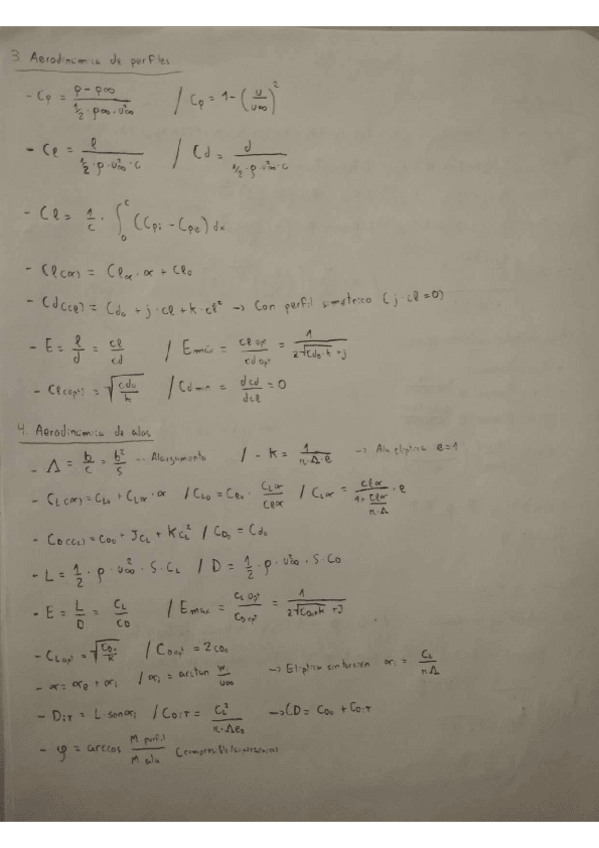 3. Aerodinámica de perfiles
- Cp = (p - p∞) / (1/2 · ρ∞ · u²∞) / Cp = 1 - (u/u∞)²
- Cl = l / (1/2 · ρ · u²∞ · c) / Cd = d / (1/2 · ρ · u²∞ · c)
- Cl = 1/c · ∫₀ᶜ (Cpi - Cpe) dx
- Cl(α) = Clα · α + Cl₀
- Cd(cl) = Cd₀ + j · cl + k · cl² → Con perfil simétrico (j · cl = 0)
- E = l/d = cl/cd / Emáx = cl opt / cd opt = 1 / (2√(Cd₀·k) + j)
- Cl(opt) = √(cd₀/k) / Cd min = dcd/dcl = 0
4. Aerodinámica de alas
- Λ = b/c = b²/S ... Alargamiento / - k = 1/(π·Λ·e) → Ala elíptica e=1
- CL(α) = CL₀ + CLα · α / CL₀ = Cl₀ · CLα/Clα / CLα = Clα/(1 + Clα/(π·Λ)) · e
- CD(CL) = CD₀ + JCL + KCL² / CD₀ = Cd₀
- L = 1/2 · ρ · u²∞ · S · CL / D = 1/2 · ρ · u²∞ · S · CD
- E = L/D = CL/CD / Emáx = CL opt / CD opt = 1 / (2√(CD₀·k) + J)
- CL opt = √(CD₀/k) / CD opt = 2CD₀
- α = αe + αi / αi = arctan wi/u∞ → Elíptica sin torsión αi = CL/(πΛ)
- Di:τ = L · senαi / CD:τ = CL²/(π·Λe₀) → CD = CD₀ + CD:τ
- φ = arccos M perfil / M ala